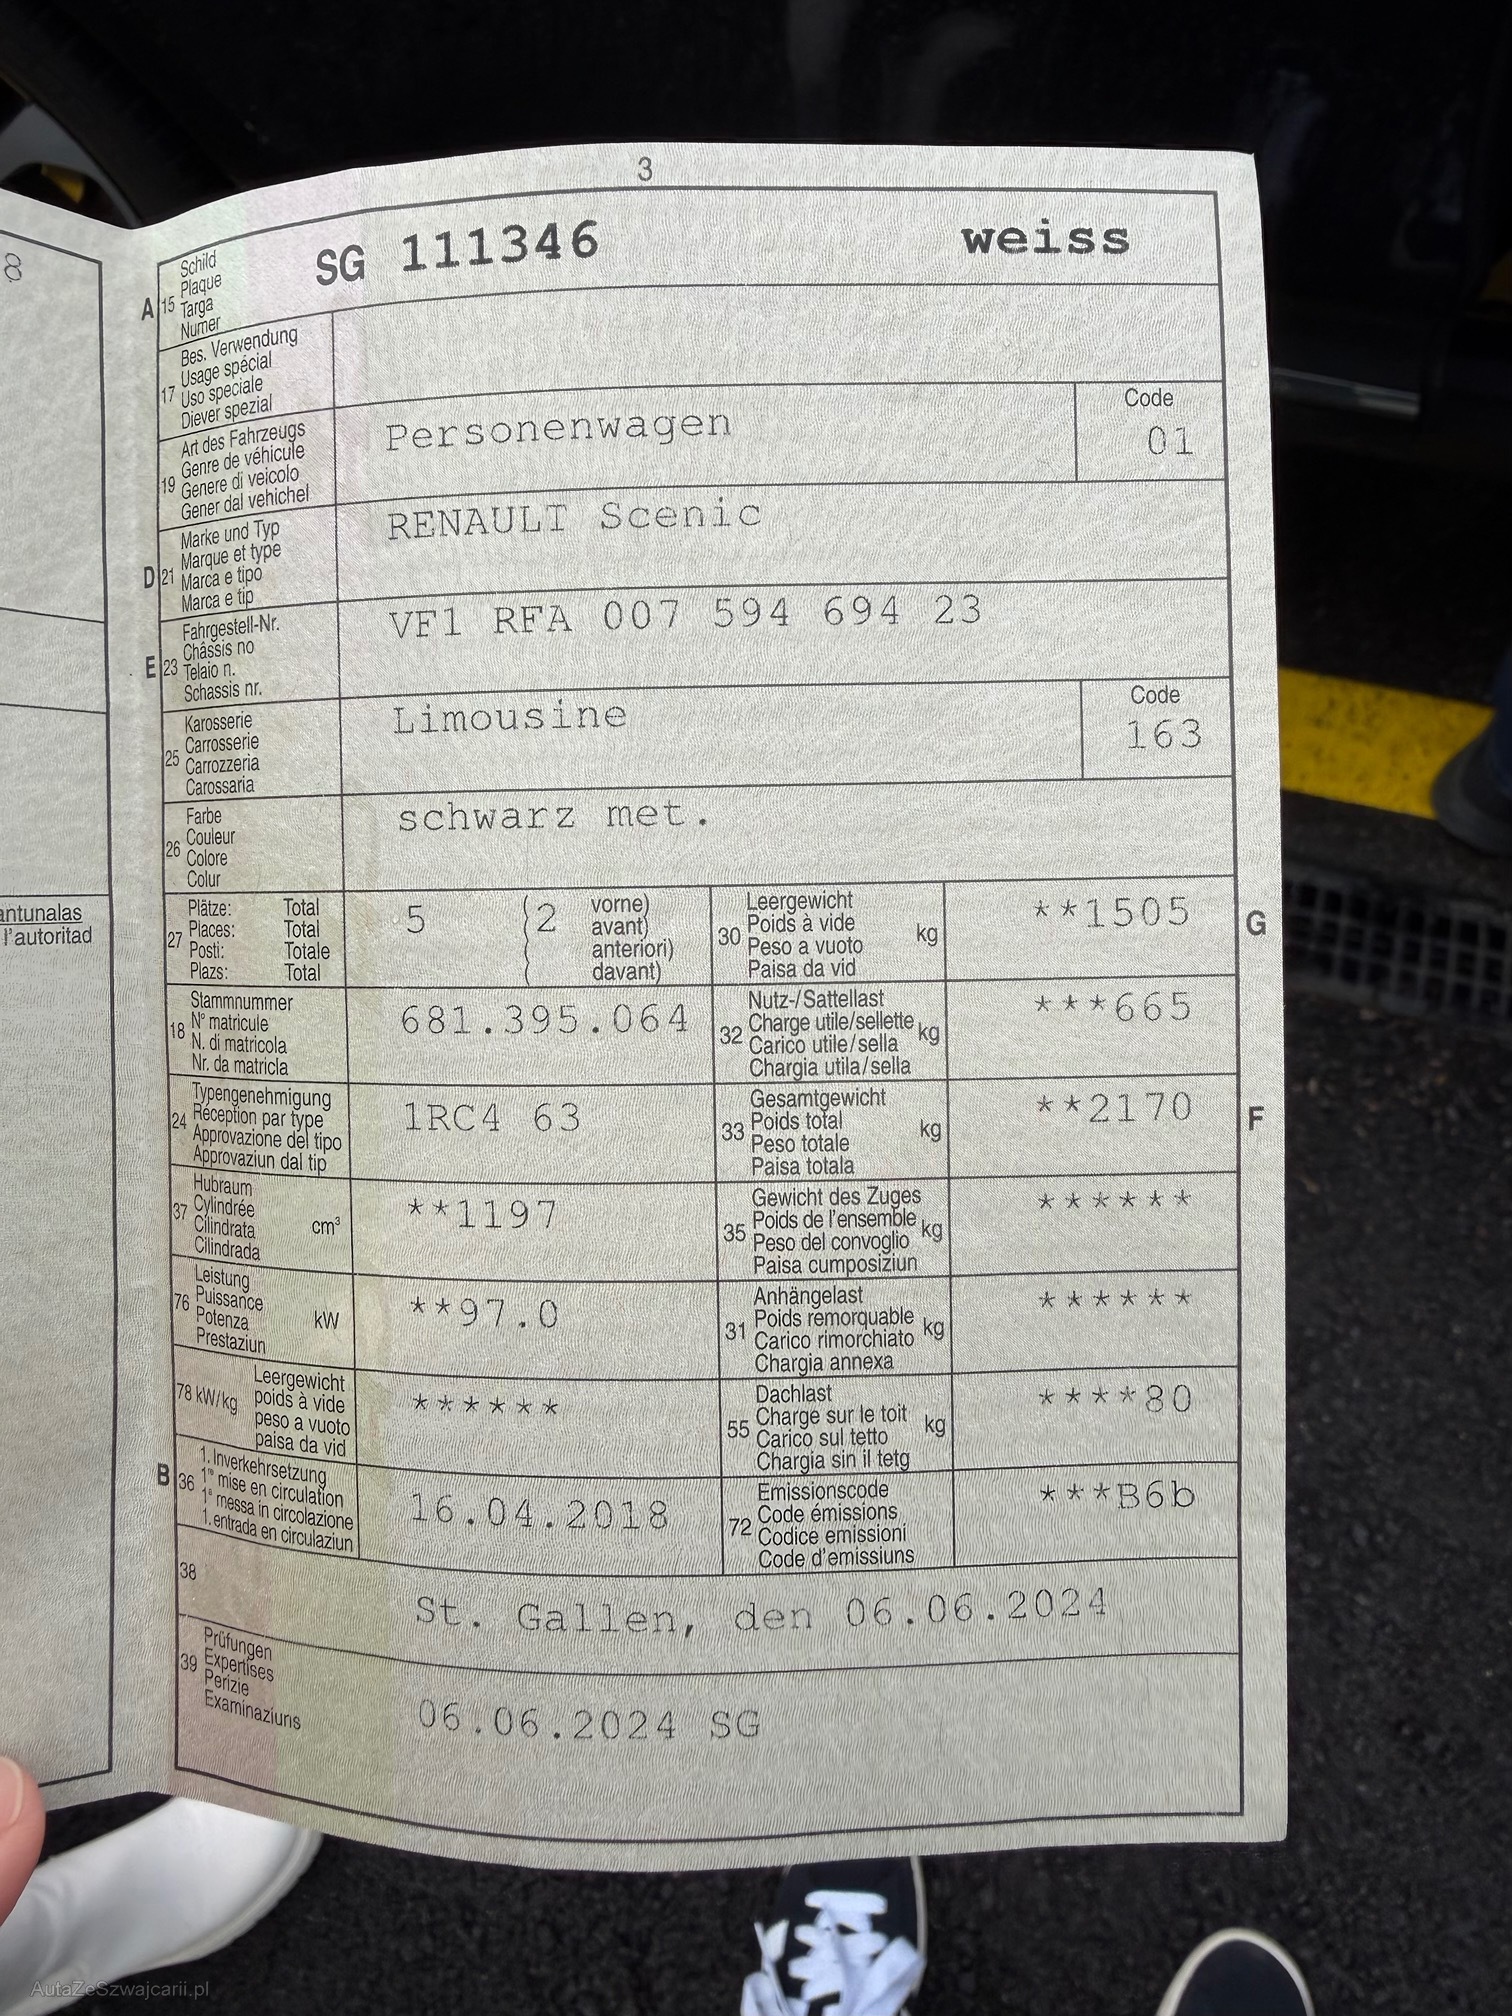 3
8
antunalas
l'autoritad
A 15 Schild
Plaque
Targa
Numer
SG 111346 weiss
17 Bes. Verwendung
Usage spécial
Uso speciale
Diever spezial
19 Art des Fahrzeugs
Genre de véhicule
Genere di veicolo
Gener dal vehichel
Personenwagen
Code
01
D 21 Marke und Typ
Marque et type
Marca e tipo
Marca e tip
RENAULT Scenic
E 23 Fahrgestell-Nr.
Châssis no
Telaio n.
Schassis nr.
VF1 RFA 007 594 694 23
25 Karosserie
Carrosserie
Carrozzeria
Carossaria
Limousine
Code
163
26 Farbe
Couleur
Colore
Colur
schwarz met.
27 Plätze: Total
Places: Total
Posti: Totale
Plazs: Total
5 (2 vorne)
avant)
anteriori)
( davant)
30 Leergewicht
Poids à vide
Peso a vuoto
Paisa da vid
kg
**1505
G
18 Stammnummer
N° matricule
N. di matricola
Nr. da matricla
681.395.064
32 Nutz-/Sattellast
Charge utile/sellette
Carico utile/sella
Chargia utila/sella
kg
***665
24 Typengenehmigung
Réception par type
Approvazione del tipo
Approvaziun dal tip
1RC4 63
33 Gesamtgewicht
Poids total
Peso totale
Paisa totala
kg
**2170
F
37 Hubraum
Cylindrée
Cilindrata
Cilindrada
cm³
**1197
35 Gewicht des Zuges
Poids de l'ensemble
Peso del convoglio
Paisa cumposiziun
kg
******
76 Leistung
Puissance
Potenza
Prestaziun
kW
**97.0
31 Anhängelast
Poids remorquable
Carico rimorchiato
Chargia annexa
kg
******
78 kW/kg Leergewicht
poids à vide
peso a vuoto
paisa da vid
******
55 Dachlast
Charge sur le toit
Carico sul tetto
Chargia sin il tetg
kg
****80
B 36 1. Inverkehrsetzung
1re mise en circulation
1a messa in circolazione
1. entrada en circulaziun
16.04.2018
72 Emissionscode
Code émissions
Codice emissioni
Code d'emissiuns
***B6b
38
St. Gallen, den 06.06.2024
39 Prüfungen
Expertises
Perizie
Examinaziuns
06.06.2024 SG
AutaZeSzwajcarii.pl